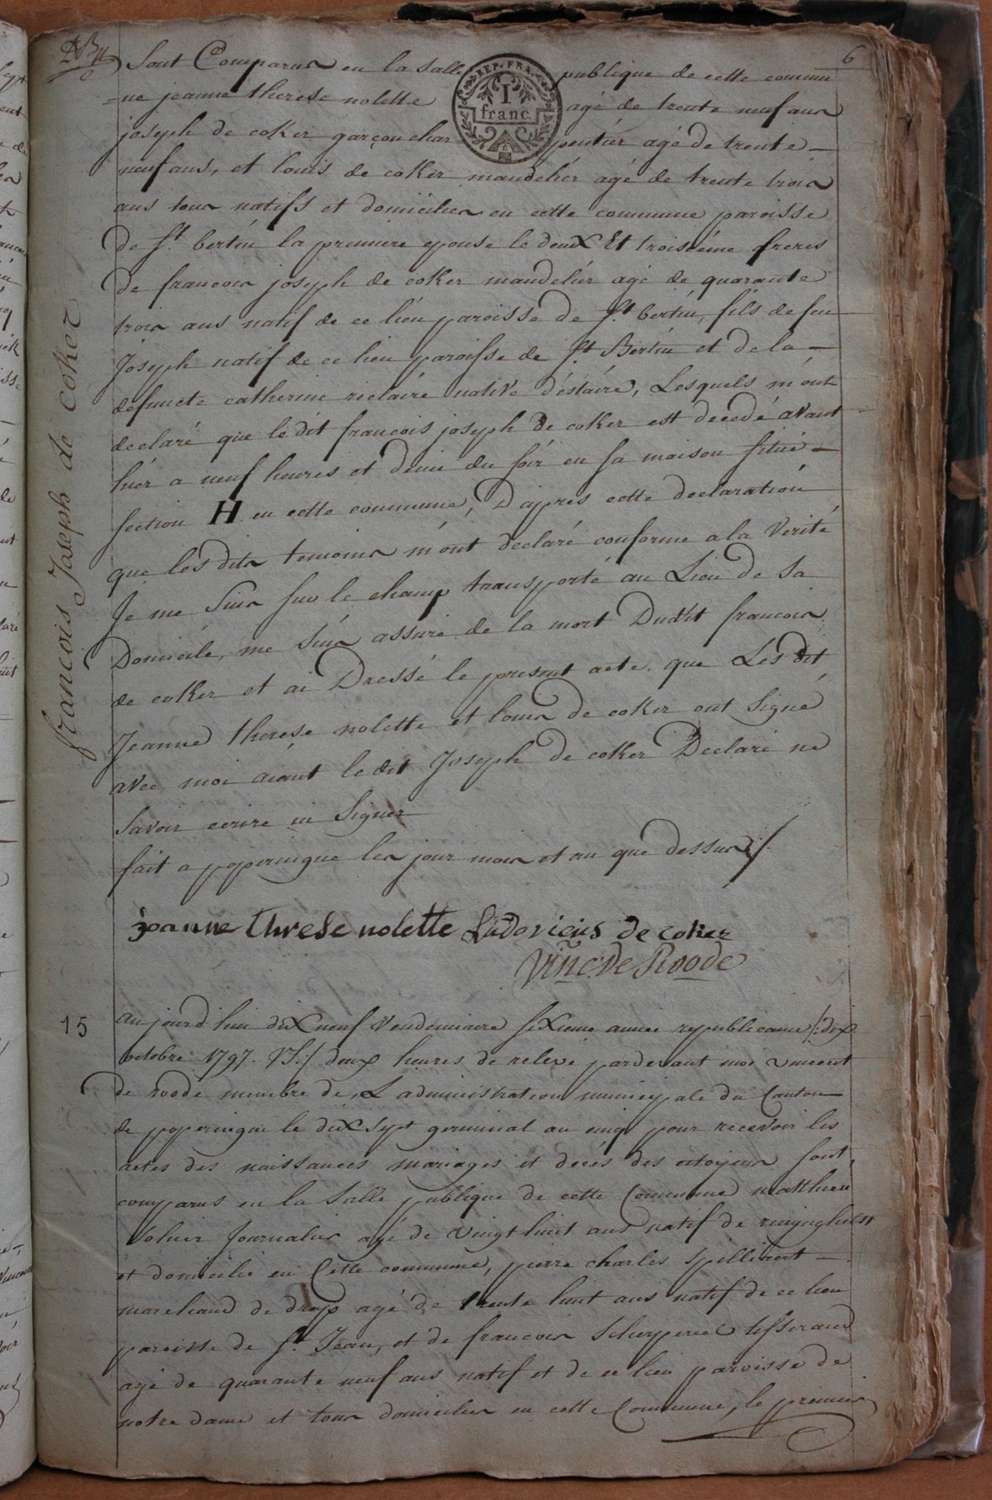 6
REP. FRA.
1
franc.
Sont Comparus en la salle publique de cette commu
=ne jeanne therese nolette agé de trente neuf ans
joseph de coker garçon charpentier agé de trente —
neuf ans, et louis de coker mandelier agé de trente trois
ans tous natifs et domiciliés en cette commune paroisse
de St bertin la premiere epouse le deux Et troisiéme freres
de francois joseph de coker mandelier agé de quarante
trois ans natif de ce lieu paroisse de St bertin, fils de feu
Joseph natif de ce lieu paroisse de St Bertin et de la —
defuncte catherine reclaire native d'estaire, Lesquels m'ont
declaré que le dit francois joseph de coker est decedé avant
hier a neuf heures et demie du soir en sa maison situé —
section H en cette commune, D'apres cette declaration
que les dits temoins m'ont declaré conforme a la Verité
Je me suis sur le champ transporté au Lieu de sa
Domicile, me suis assuré de la mort Dudit francois
de coker et ai Dressé le present acte. que Les dit
Jeanne therese nolette et louis de coker ont signé
avec moi aiant le dit Joseph de coker Declaré ne
savoir ecrire ni signer
fait a poperingue les jour mois et an que dessus /
francois Joseph de coker
jeanne threse nolette Ludovicus de coker
Vinc: De Roode
15
aujourd'hui dix neuf Vendemiaire sixieme année republicaine /: dix
octobre 1797. V.S./ deux heures de relevé pardevant moi vincent
de Roode membre de L'administration municipale du Canton
de poperingue le dix sept germinal an cinq pour recevoir les
actes des naissances mariages et deces des citoyens sont
comparus en la Salle publique de cette Commune matthieu
Journalier agé de vingt huit ans natif de
et domicilié en Cette commune, pierre charles spillibout —
marchand de draps agé de trente huit ans natif de ce lieu
paroisse de St. Jean, et de francois tisserand
agé de quarante neuf ans natif et de ce lieu paroisse de
notre dame et tous domiciliés en cette Commune, le premier